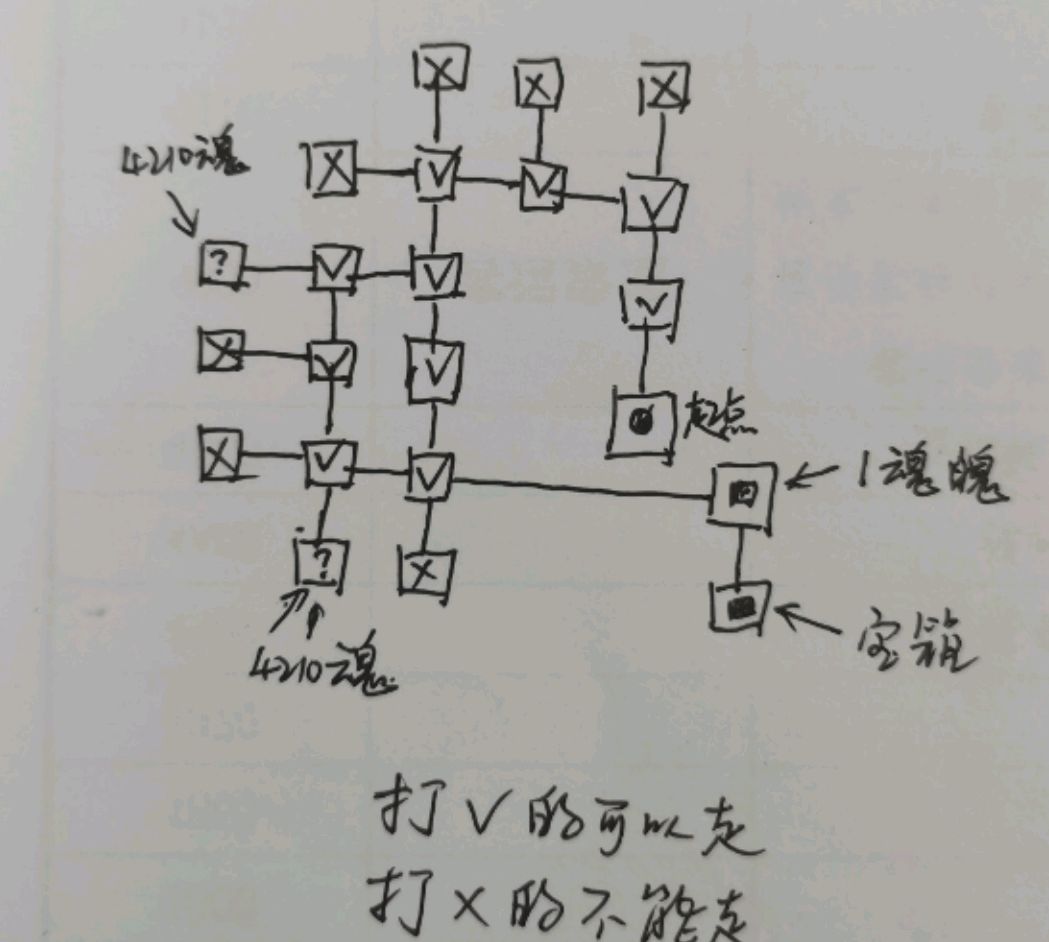 4210魂
起点
1魂魄
宝箱
4210魂
打√的可以走
打×的不能走